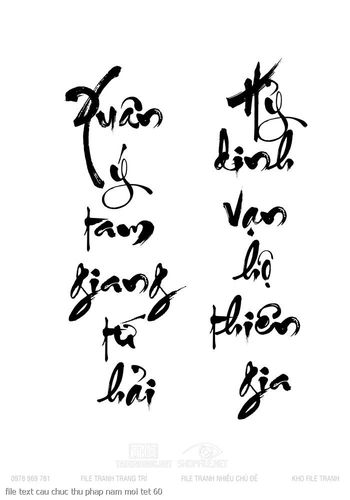 Xuân
ý
tam
giang
tứ
hải
Hỷ
đinh
vạn
hộ
thiên
gia
SHOPFILE.NET
0978 969 761 FILE TRANH TRANG TRÍ FILE TRANH NHIỀU CHỦ ĐỀ KHO FILE TRANH
file text cau chuc thu phap nam moi tet 60